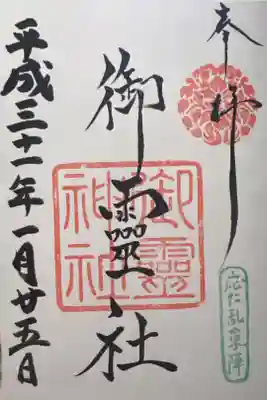 奉拝
御靈社
御靈
神社
応仁乱
平成三十一年一月廿五日